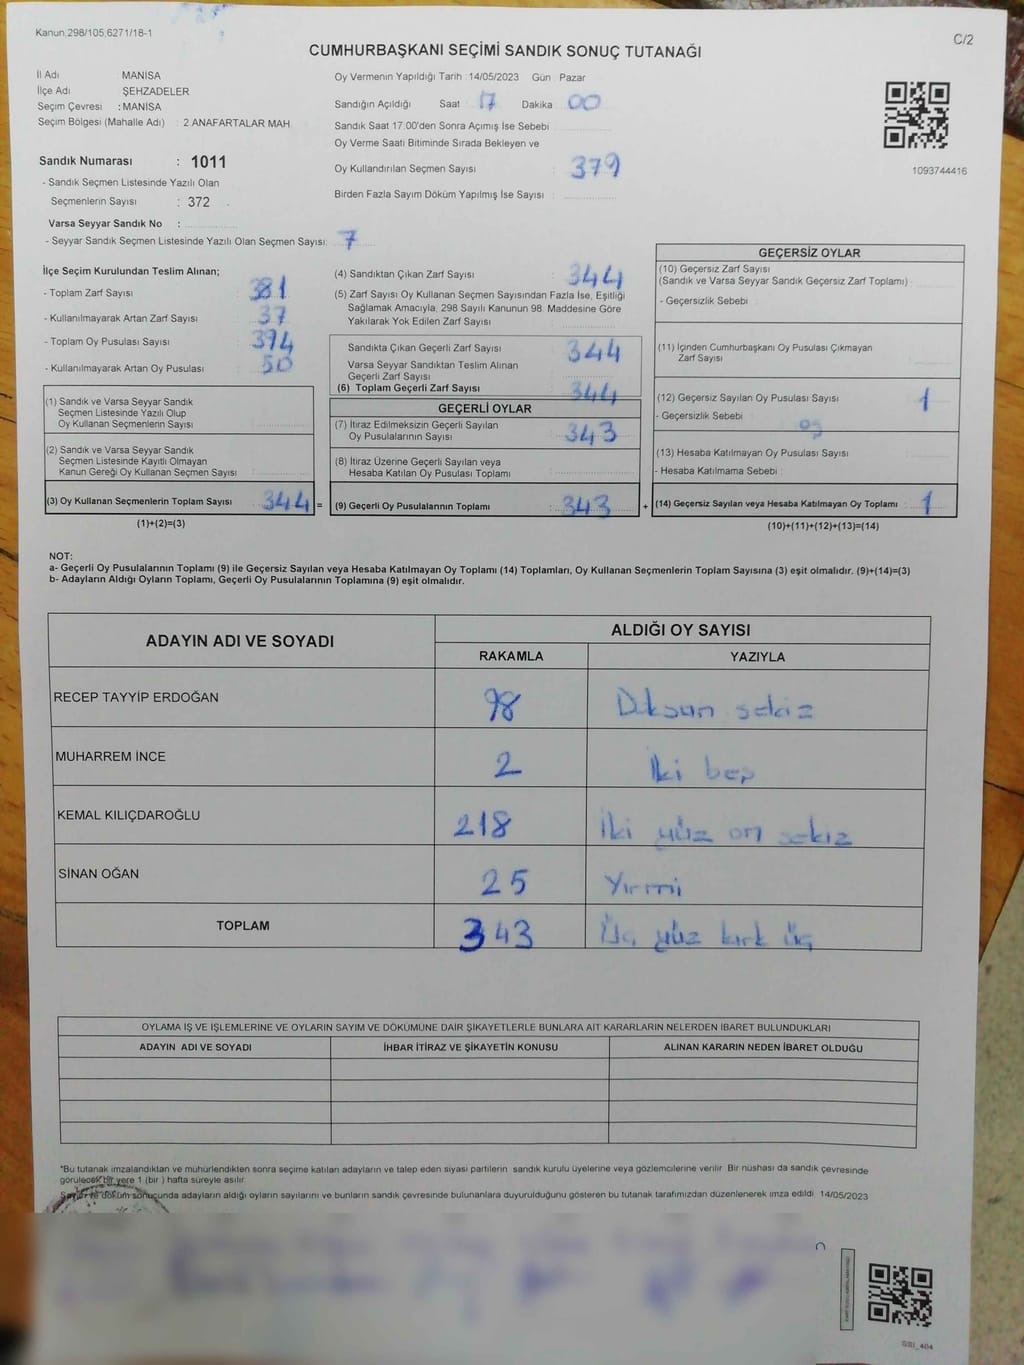 Kanun,298/105,6271/18-1
C/2
CUMHURBAŞKANI SEÇİMİ SANDIK SONUÇ TUTANAĞI
İl Adı MANİSA
İlçe Adı ŞEHZADELER
Seçim Çevresi : MANİSA
Seçim Bölgesi (Mahalle Adı) : 2 ANAFARTALAR MAH
Sandık Numarası : 1011
- Sandık Seçmen Listesinde Yazılı Olan
Seçmenlerin Sayısı : 372
Varsa Seyyar Sandık No :
- Seyyar Sandık Seçmen Listesinde Yazılı Olan Seçmen Sayısı: 7
Oy Vermenin Yapıldığı Tarih :14/05/2023 Gün : Pazar
Sandığın Açıldığı Saat 17 Dakika : 00
Sandık Saat 17:00'den Sonra Açımış İse Sebebi
Oy Verme Saati Bitiminde Sırada Bekleyen ve
Oy Kullandırılan Seçmen Sayısı : 379
Birden Fazla Sayım Döküm Yapılmış İse Sayısı :
1093744416
İlçe Seçim Kurulundan Teslim Alınan;
- Toplam Zarf Sayısı : 381
- Kullanılmayarak Artan Zarf Sayısı : 37
- Toplam Oy Pusulası Sayısı : 394
- Kullanılmayarak Artan Oy Pusulası : 50
(1) Sandık ve Varsa Seyyar Sandık
Seçmen Listesinde Yazılı Olup
Oy Kullanan Seçmenlerin Sayısı
(2) Sandık ve Varsa Seyyar Sandık
Seçmen Listesinde Kayıtlı Olmayan
Kanun Gereği Oy Kullanan Seçmen Sayısı
(3) Oy Kullanan Seçmenlerin Toplam Sayısı : 344 =
(1)+(2)=(3)
(4) Sandıktan Çıkan Zarf Sayısı : 344
(5) Zarf Sayısı Oy Kullanan Seçmen Sayısından Fazla İse, Eşitliği
Sağlamak Amacıyla, 298 Sayılı Kanunun 98. Maddesine Göre
Yakılarak Yok Edilen Zarf Sayısı
Sandıkta Çıkan Geçerli Zarf Sayısı : 344
Varsa Seyyar Sandıktan Teslim Alınan
Geçerli Zarf Sayısı
(6) Toplam Geçerli Zarf Sayısı 344
GEÇERLİ OYLAR
(7) İtiraz Edilmeksizin Geçerli Sayılan
Oy Pusulalarının Sayısı : 343
(8) İtiraz Üzerine Geçerli Sayılan veya
Hesaba Katılan Oy Pusulası Toplamı
(9) Geçerli Oy Pusulalarının Toplamı : 343 +
GEÇERSİZ OYLAR
(10) Geçersiz Zarf Sayısı
(Sandık ve Varsa Seyyar Sandık Geçersiz Zarf Toplamı) :
- Geçersizlik Sebebi
(11) İçinden Cumhurbaşkanı Oy Pusulası Çıkmayan
Zarf Sayısı
(12) Geçersiz Sayılan Oy Pusulası Sayısı : 1
- Geçersizlik Sebebi
(13) Hesaba Katılmayan Oy Pusulası Sayısı
- Hesaba Katılmama Sebebi :
(14) Geçersiz Sayılan veya Hesaba Katılmayan Oy Toplamı : 1
(10)+(11)+(12)+(13)=(14)
NOT:
a- Geçerli Oy Pusulalarının Toplamı (9) ile Geçersiz Sayılan veya Hesaba Katılmayan Oy Toplamı (14) Toplamları, Oy Kullanan Seçmenlerin Toplam Sayısına (3) eşit olmalıdır. (9)+(14)=(3)
b- Adayların Aldığı Oyların Toplamı, Geçerli Oy Pusulalarının Toplamına (9) eşit olmalıdır.
ADAYIN ADI VE SOYADI ALDIĞI OY SAYISI
RAKAMLA YAZIYLA
RECEP TAYYİP ERDOĞAN 98 Doksan sekiz
MUHARREM İNCE 2 İki beş
KEMAL KILIÇDAROĞLU 218 İki yüz on sekiz
SİNAN OĞAN 25 Yirmi
TOPLAM 343 Üç yüz kırk üç
OYLAMA İŞ VE İŞLEMLERİNE VE OYLARIN SAYIM VE DÖKÜMÜNE DAİR ŞİKAYETLERLE BUNLARA AİT KARARLARIN NELERDEN İBARET BULUNDUKLARI
ADAYIN ADI VE SOYADI İHBAR İTİRAZ VE ŞİKAYETİN KONUSU ALINAN KARARIN NEDEN İBARET OLDUĞU
*Bu tutanak imzalandıktan ve mühürlendikten sonra seçime katılan adayların ve talep eden siyasi partilerin sandık kurulu üyelerine veya gözlemcilerine verilir. Bir nüshası da sandık çevresinde
görülecek bir yere 1 (bir ) hafta süreyle asılır.
Sayım ve döküm sonucunda adayların aldığı oyların sayılarını ve bunların sandık çevresinde bulunanlara duyurulduğunu gösteren bu tutanak tarafımızdan düzenlenerek imza edildi. 14/05/2023